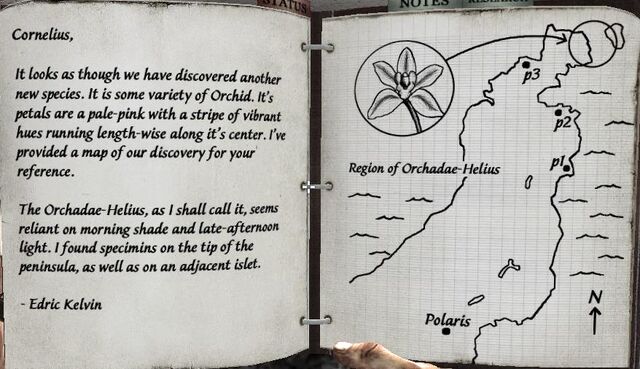 STATUS
NOTES
RESEARCH
Cornelius,
It looks as though we have discovered another
new species. It is some variety of Orchid. It's
petals are a pale-pink with a stripe of vibrant
hues running length-wise along it's center. I've
provided a map of our discovery for your
reference.
The Orchadae-Helius, as I shall call it, seems
reliant on morning shade and late-afternoon
light. I found specimins on the tip of the
peninsula, as well as on an adjacent islet.
- Edric Kelvin
p3
p2
p1
Region of Orchadae-Helius
N
Polaris